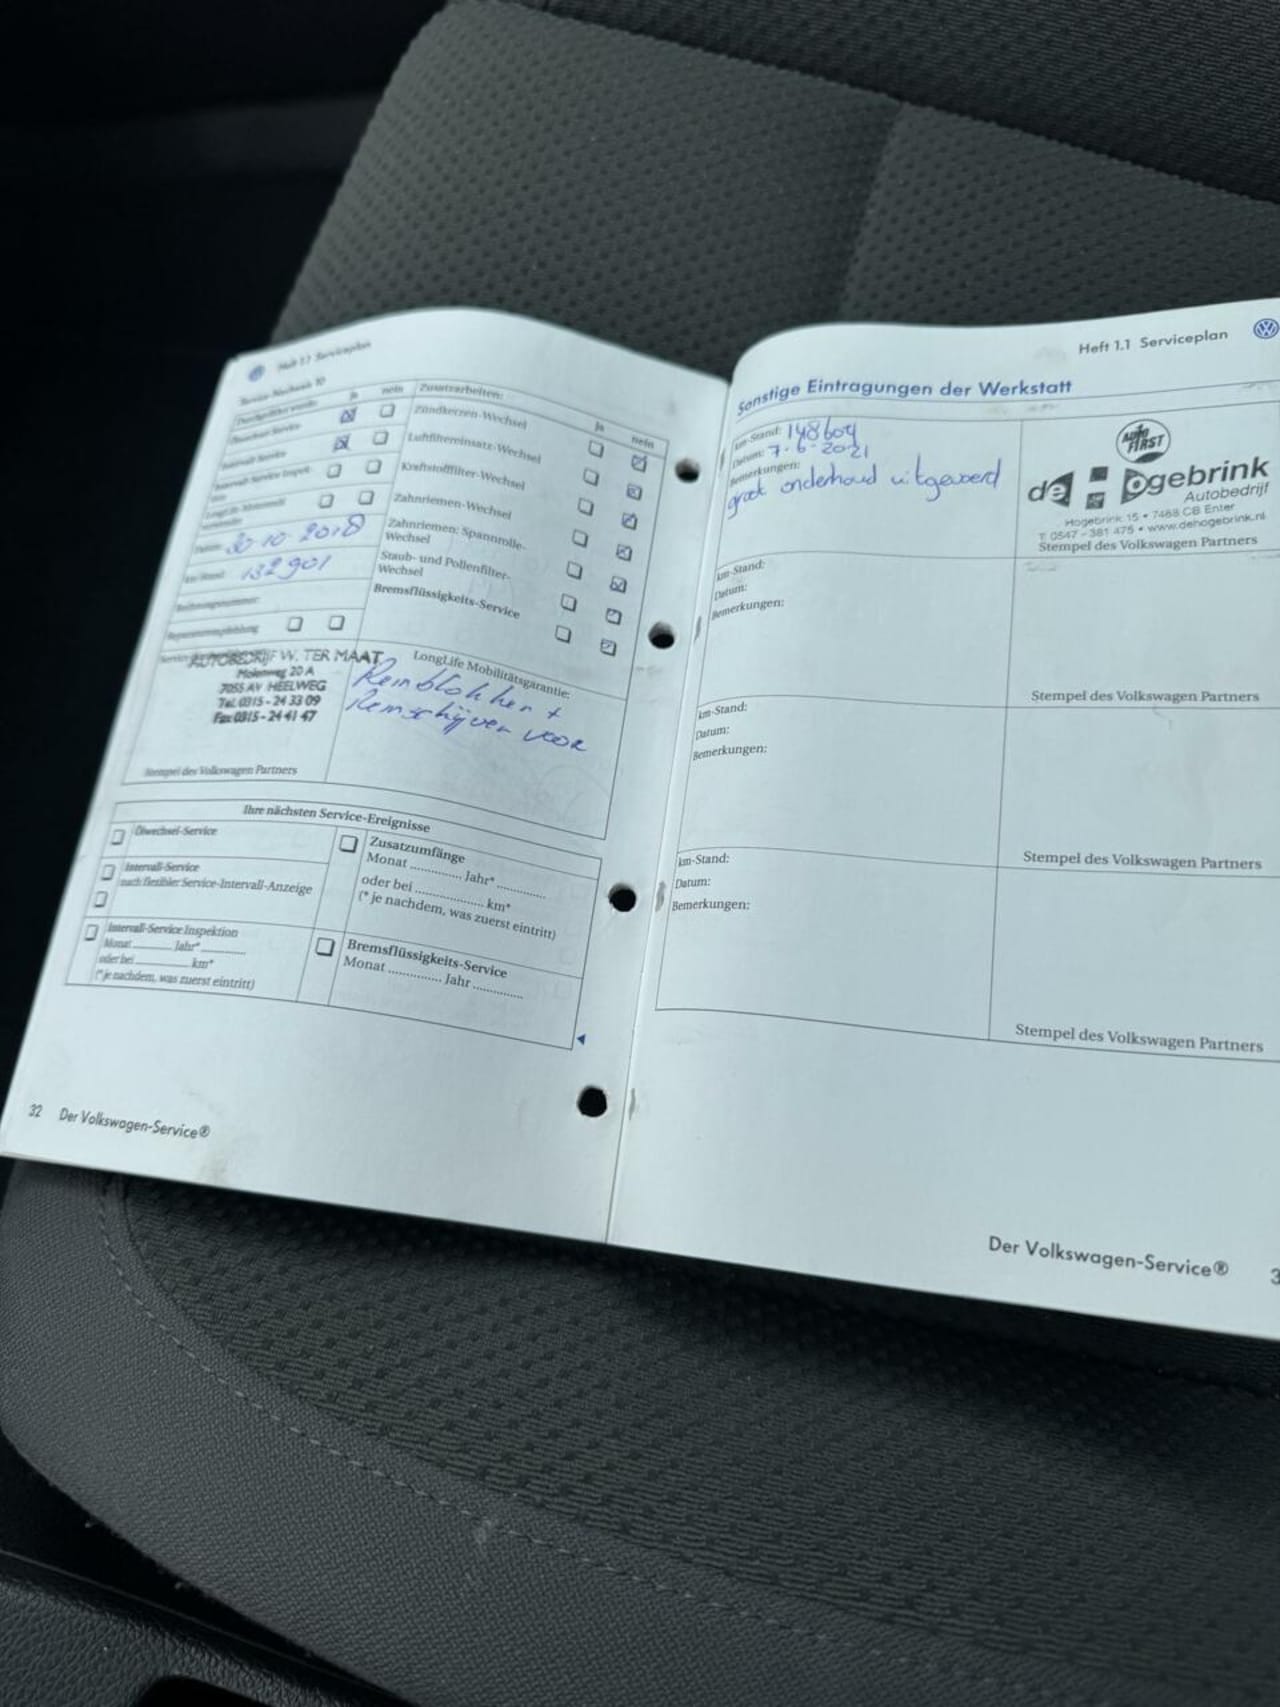 Heft 1.1 Serviceplan
Service-Nachweis 10
Durchgeführt wurde:
ja
nein
Ölwechsel-Service
Intervall-Service
Intervall-Service Inspek-
tion
LongLife-Motorenöl
verwendet
Datum: 30-10-2018
km-Stand: 132901
Rechnungsnummer:
Reparaturempfehlung
AUTOBEDRIJF W. TER MAAT
Molenweg 20 A
7055 AV HEELWEG
Tel. 0315 - 24 33 09
Fax 0315 - 24 41 47
Stempel des Volkswagen Partners
Zusatzarbeiten:
ja
nein
Zündkerzen-Wechsel
Luftfiltereinsatz-Wechsel
Kraftstofffilter-Wechsel
Zahnriemen-Wechsel
Zahnriemen: Spannrolle-
Wechsel
Staub- und Pollenfilter-
Wechsel
Bremsflüssigkeits-Service
LongLife Mobilitätsgarantie:
Remblokken +
Remschijven voor
Ihre nächsten Service-Ereignisse
Ölwechsel-Service
Intervall-Service
nach flexibler Service-Intervall-Anzeige
Intervall-Service Inspektion
Monat ............ Jahr* ............
oder bei ............ km*
(* je nachdem, was zuerst eintritt)
Zusatzumfänge
Monat ............ Jahr* ............
oder bei ............ km*
(* je nachdem, was zuerst eintritt)
Bremsflüssigkeits-Service
Monat ............ Jahr ............
32 Der Volkswagen-Service®
Heft 1.1 Serviceplan
Sonstige Eintragungen der Werkstatt
km-Stand: 148604
Datum: 7-6-2021
Bemerkungen:
groot onderhoud uitgevoerd
AUTO
FIRST
de Hogebrink
Autobedrijf
Hogebrink 15 • 7468 CB Enter
T: 0547 - 381 475 • www.dehogebrink.nl
Stempel des Volkswagen Partners
km-Stand:
Datum:
Bemerkungen:
Stempel des Volkswagen Partners
km-Stand:
Datum:
Bemerkungen:
Stempel des Volkswagen Partners
km-Stand:
Datum:
Bemerkungen:
Stempel des Volkswagen Partners
Der Volkswagen-Service®